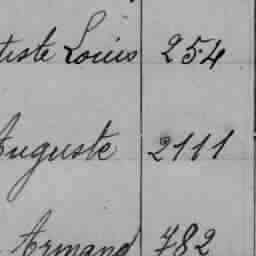 tiste Louis 254
Auguste 2111
Armand 782